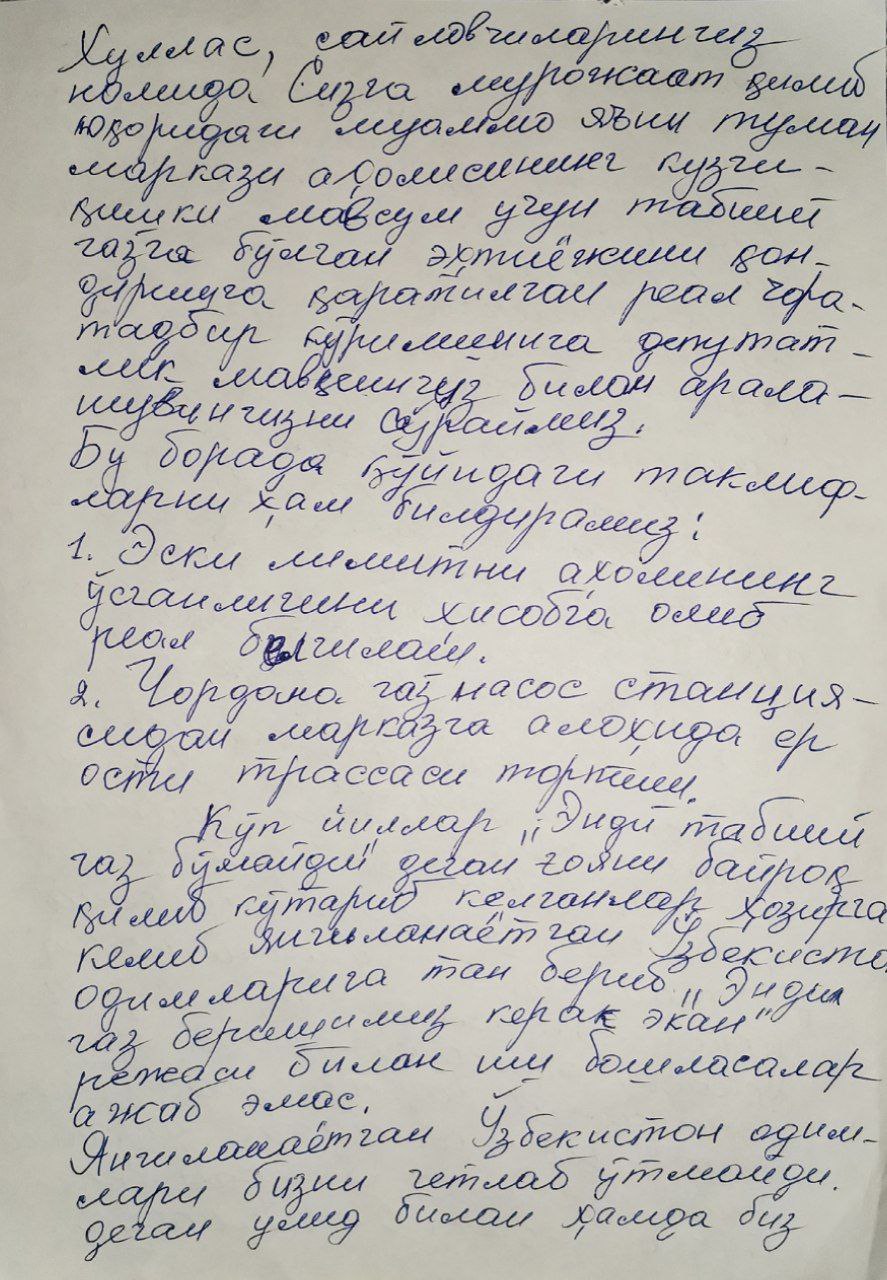 Хуллас, сайловчиларингиз
номида Сизга мурожаат қилиб
юқоридаги муаммо яъни туман
маркази аҳолисининг кузги-
қишки мавсум учун табиий
газга бўлган эҳтиёжини қон-
диришга қаратилган реал чора-
тадбир кўрилишига депутат-
лик мавқеингиз билан арала-
шувингизни сўраймиз.
Бу борада қўйидаги таклиф-
ларни ҳам билдирамиз:
1. Эски лимитни аҳолининг
ўсганлигини хисобга олиб
реал белгилаш.
2. Чордана газ насос станция-
сидан марказга алоҳида ер
ости трассаси тортиш.
Кўп йиллар „Энди табиий
газ бўмайди" деган ғояни байроқ
қилиб кўтариб келганлар ҳозирга
келиб янгиланаётган Ўзбекисто
одимларига тан бериб „Энди
газ беришимиз керак экан"
режаси билан иш бошласалар
ажаб эмас.
Янгиланаётган Ўзбекистон одим-
лари бизни четлаб ўтмайди.
деган умид билан ҳамда биз